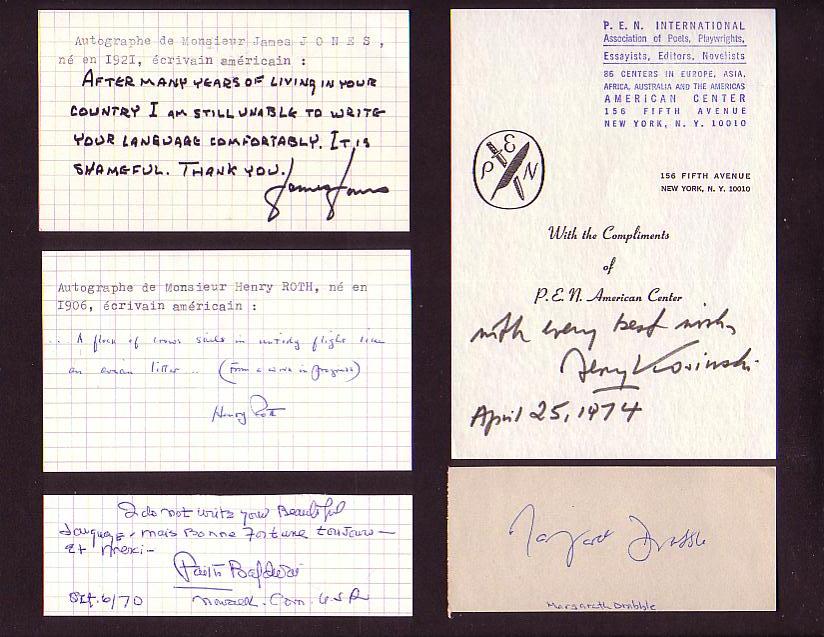 Autographe de Monsieur James J O N E S ,
né en I92I, écrivain américain :
AFTER MANY YEARS OF LIVING IN YOUR
COUNTRY I AM STILL UNABLE TO WRITE
YOUR LANGUAGE COMFORTABLY. IT IS
SHAMEFUL. THANK YOU.
James Jones
Autographe de Monsieur Henry ROTH, né en
I906, écrivain américain :
.. A flock of crows sails in untidy flight like
an avian litter .. (from a work in progress)
Henry Roth
I do not write your Beautiful
language, mais Bonne Fortune toujours —
et merci —
Oct. 6/70
P. E. N. INTERNATIONAL
Association of Poets, Playwrights,
Essayists, Editors, Novelists
86 CENTERS IN EUROPE, ASIA,
AFRICA, AUSTRALIA AND THE AMERICAS
AMERICAN CENTER
156 FIFTH AVENUE
NEW YORK, N. Y. 10010
P E N
156 FIFTH AVENUE
NEW YORK, N. Y. 10010
With the Compliments
of
P. E. N. American Center
with every best wish,
Jerzy Kosinski
April 25, 1974
Margaret Drabble
Margareth Drabble